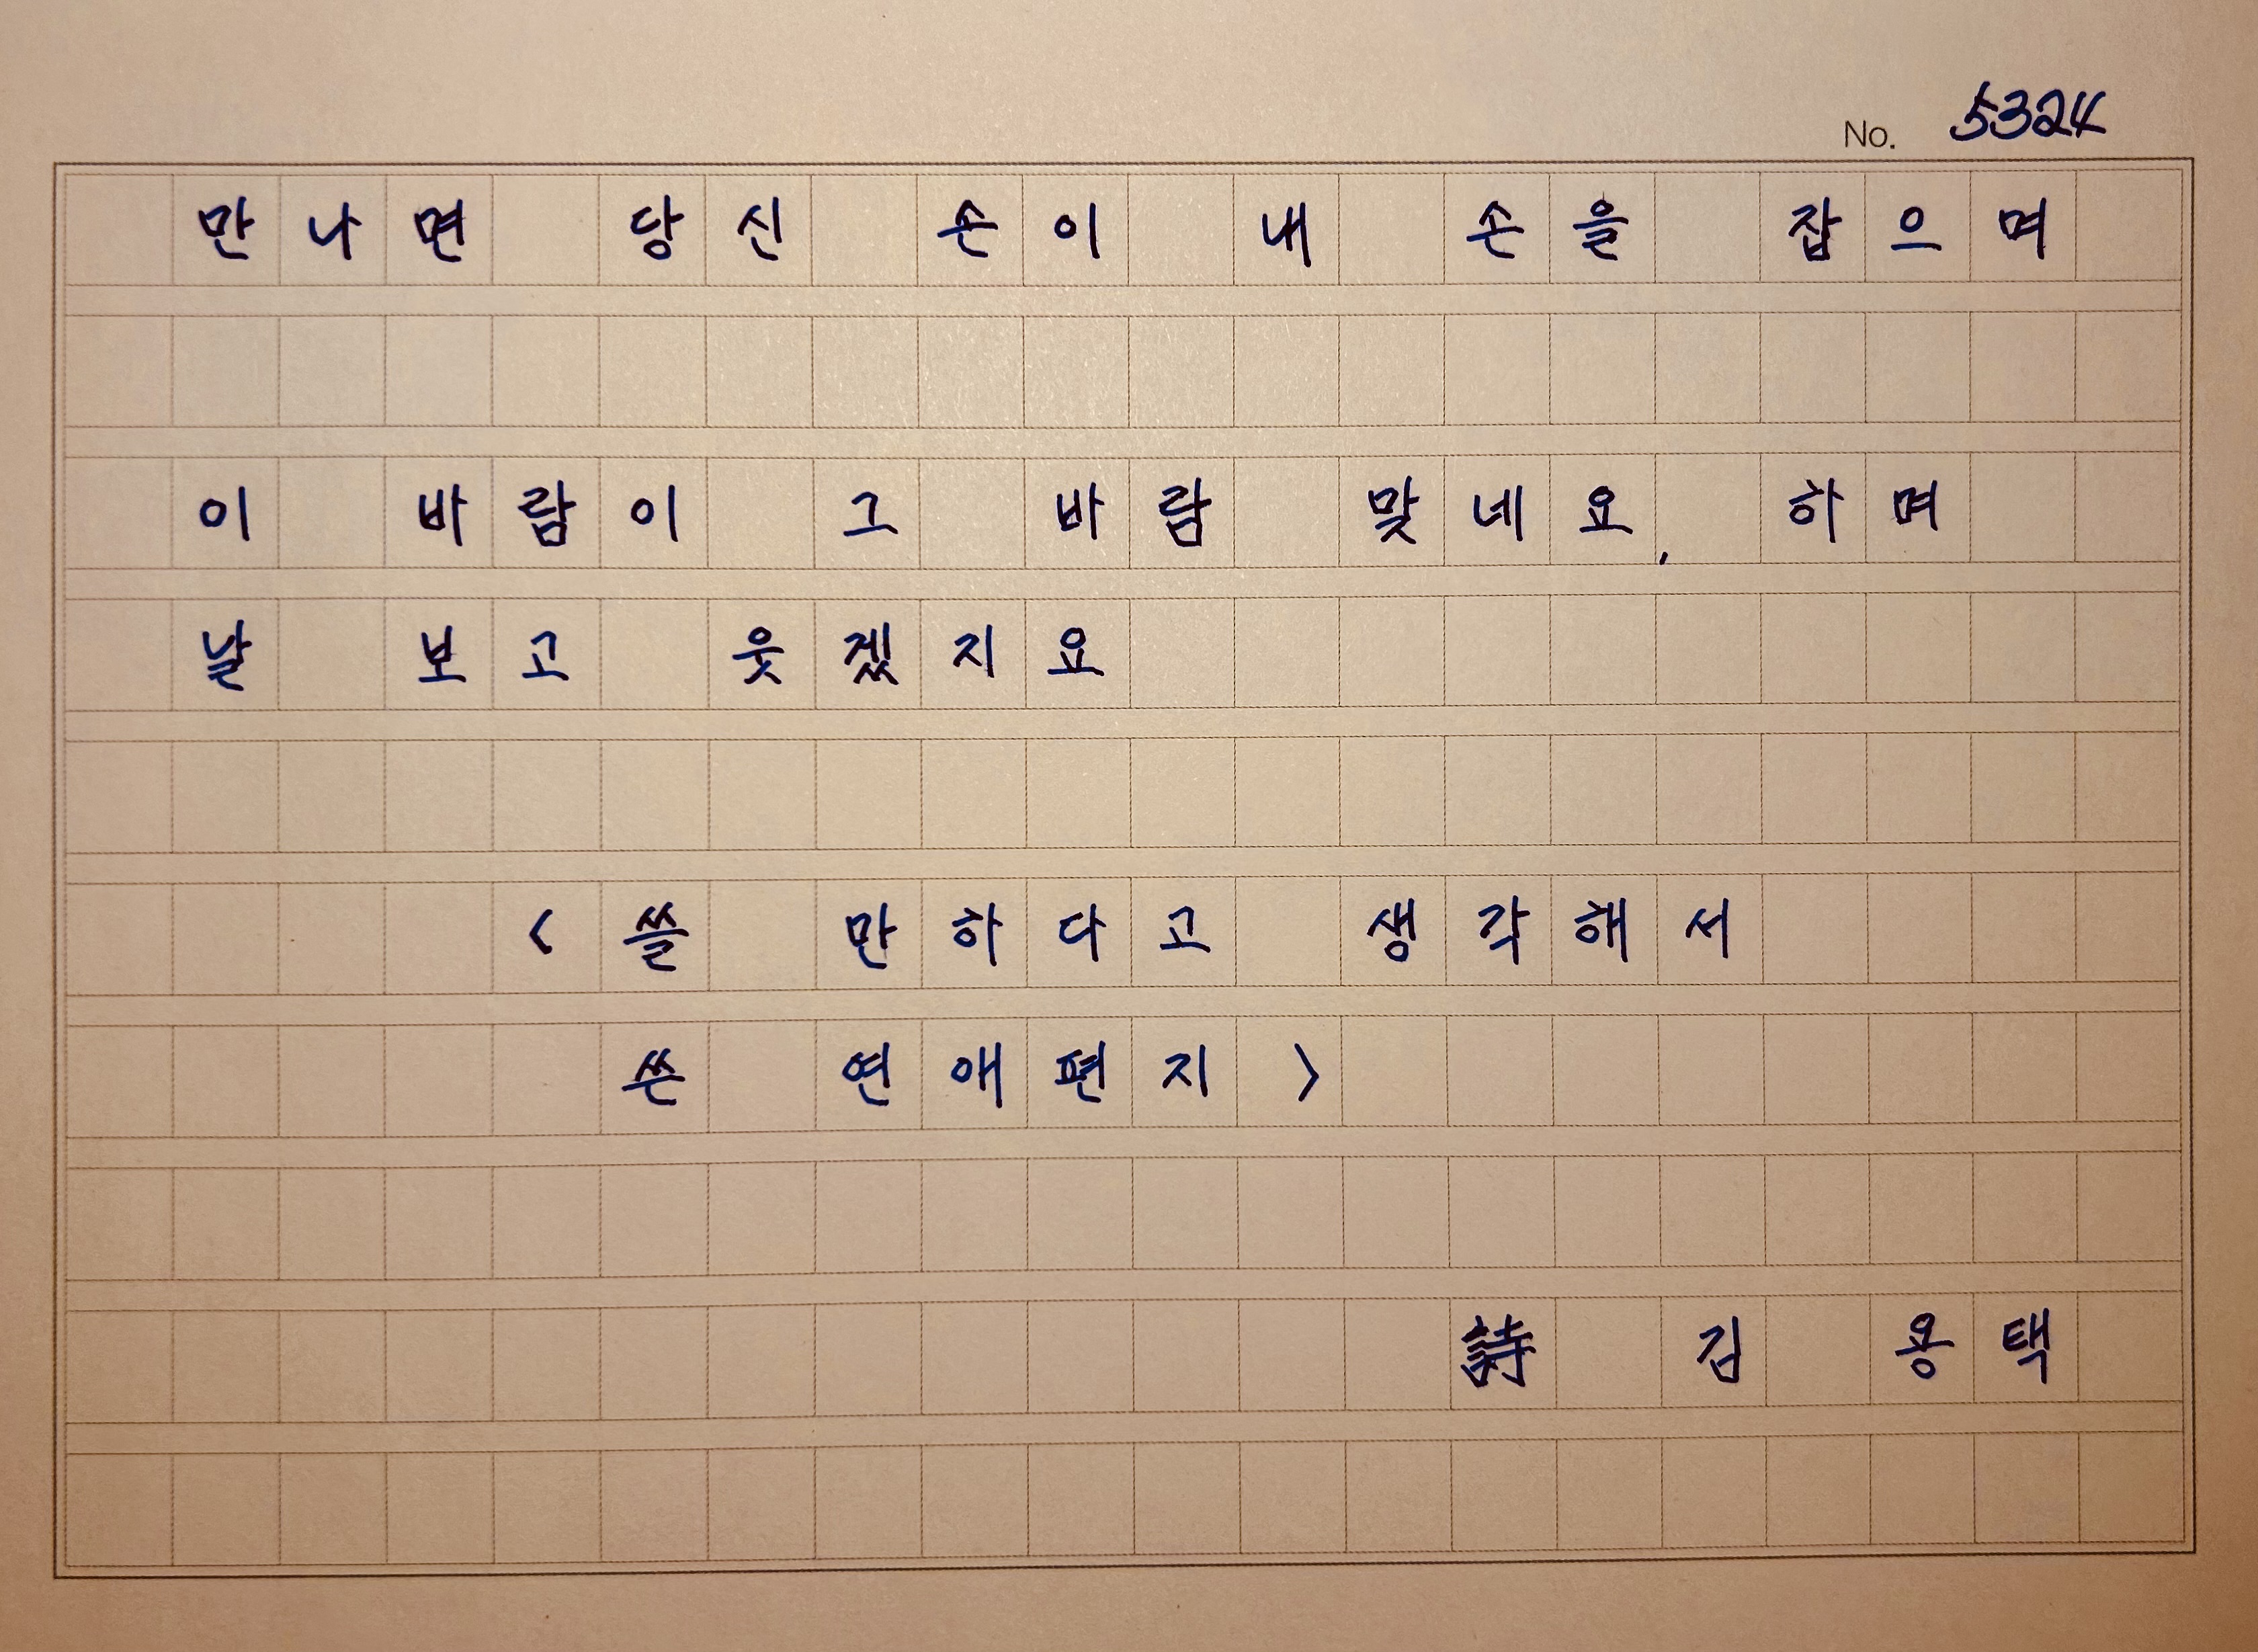 No. 5324
만나면 당신 손이 내 손을 잡으며
이 바람이 그 바람 맞네요, 하며
날 보고 웃겠지요
<쓸 만하다고 생각해서
쓴 연애편지>
詩 김 용택